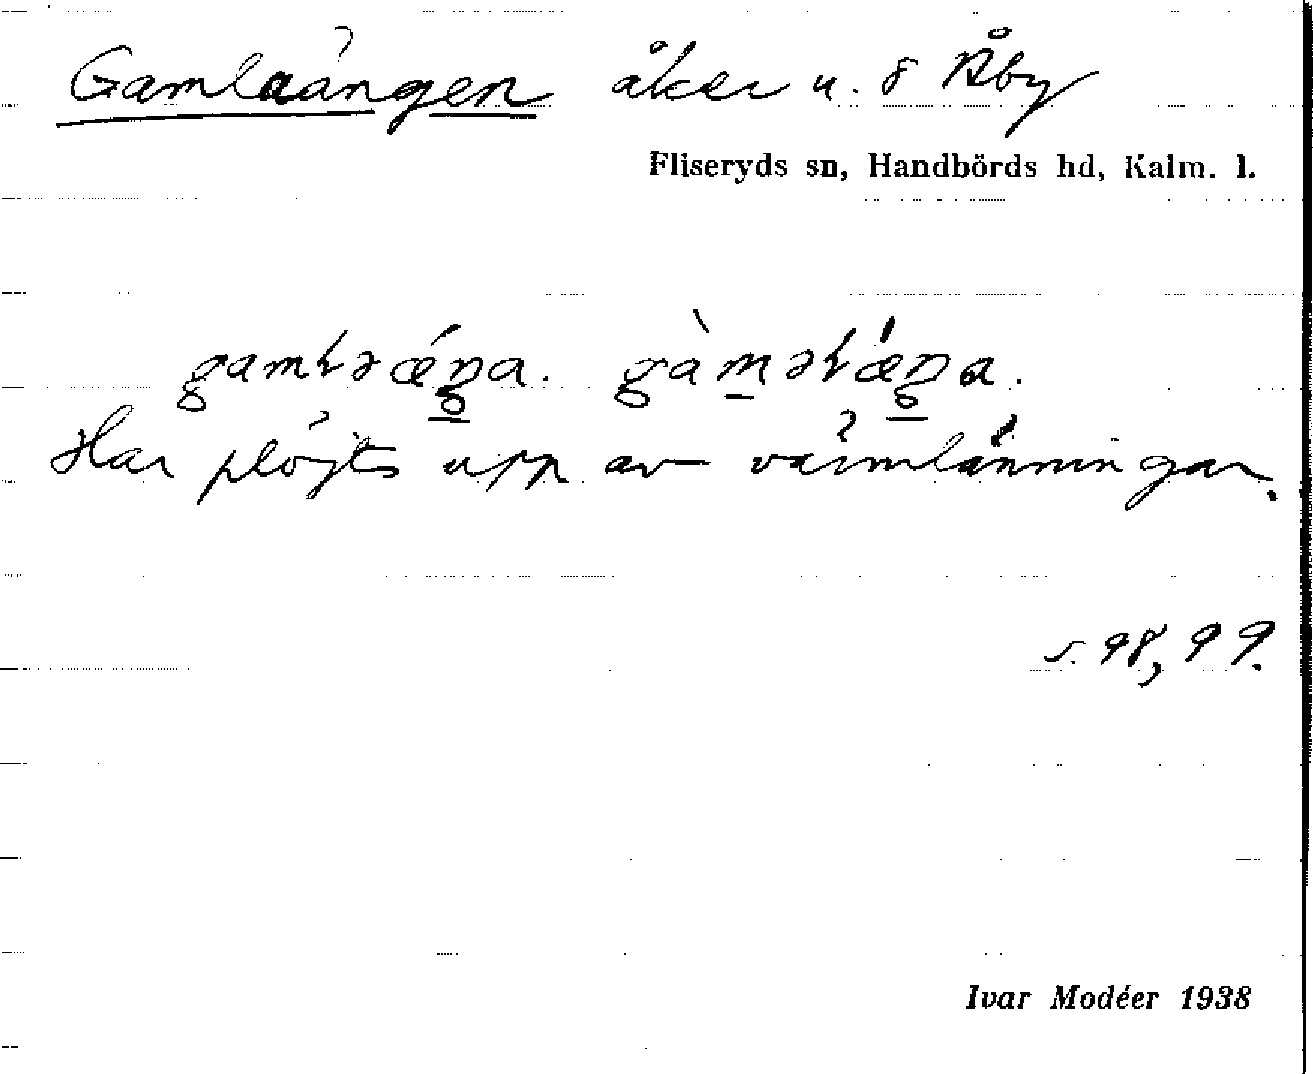 Gamlaängen åker u. 8 Åby
Fliseryds sn, Handbörds hd, Kalm. l.
Har plöjts upp av värmlänningar.
s. 98, 99.
Ivar Modéer 1938